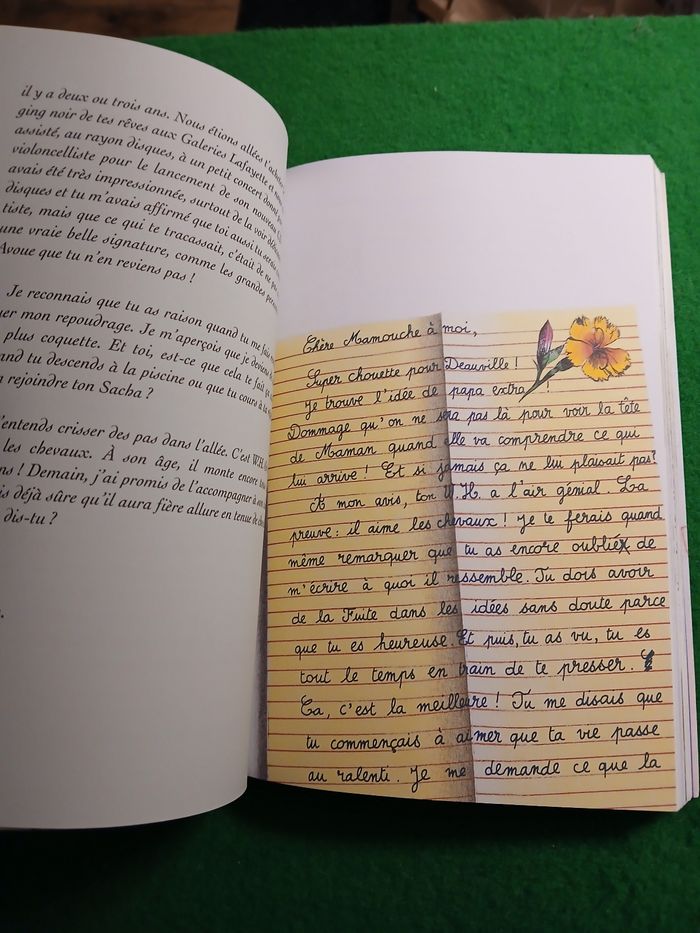 il y a deux ou trois ans. Nous étions allées
ging noir de tes rêves aux Galeries Lafayette et
assisté, au rayon disques, à un petit concert donné
violoncelliste pour le lancement de son nouveau
avais été très impressionnée, surtout de la voir
disques et tu m'avais affirmé que toi aussi tu serais
tiste, mais que ce qui te tracassait, c'était de ne pas
une vraie belle signature, comme les grandes
Avoue que tu n'en reviens pas !
Je reconnais que tu as raison quand tu me fais
uer mon repoudrage. Je m'aperçois que je deviens
plus coquette. Et toi, est-ce que cela te fait ça
and tu descends à la piscine ou que tu cours à la
rejoindre ton Sacha ?
'entends crisser des pas dans l'allée. C'est W.H.
les chevaux. À son âge, il monte encore
ns ! Demain, j'ai promis de l'accompagner à
is déjà sûre qu'il aura fière allure en tenue de
dis-tu ?
Chère Mamouche à moi,
Super chouette pour Deauville !
Je trouve l'idée de papa extra !
Dommage qu'on ne sera pas là pour voir la tête
de Maman quand elle va comprendre ce qui
lui arrive ! Et si jamais ça ne lui plaisait pas?
A mon avis, ton W.H. a l'air génial. La
preuve : il aime les chevaux ! Je te ferais quand
même remarquer que tu as encore oublié de
m'écrire à quoi il ressemble. Tu dois avoir
de la fuite dans les idées sans doute parce
que tu es heureuse. Et puis, tu as vu, tu es
tout le temps en train de te presser.
Ça, c'est la meilleure ! Tu me disais que
tu commençais à aimer que ta vie passe
au ralenti. Je me demande ce que la